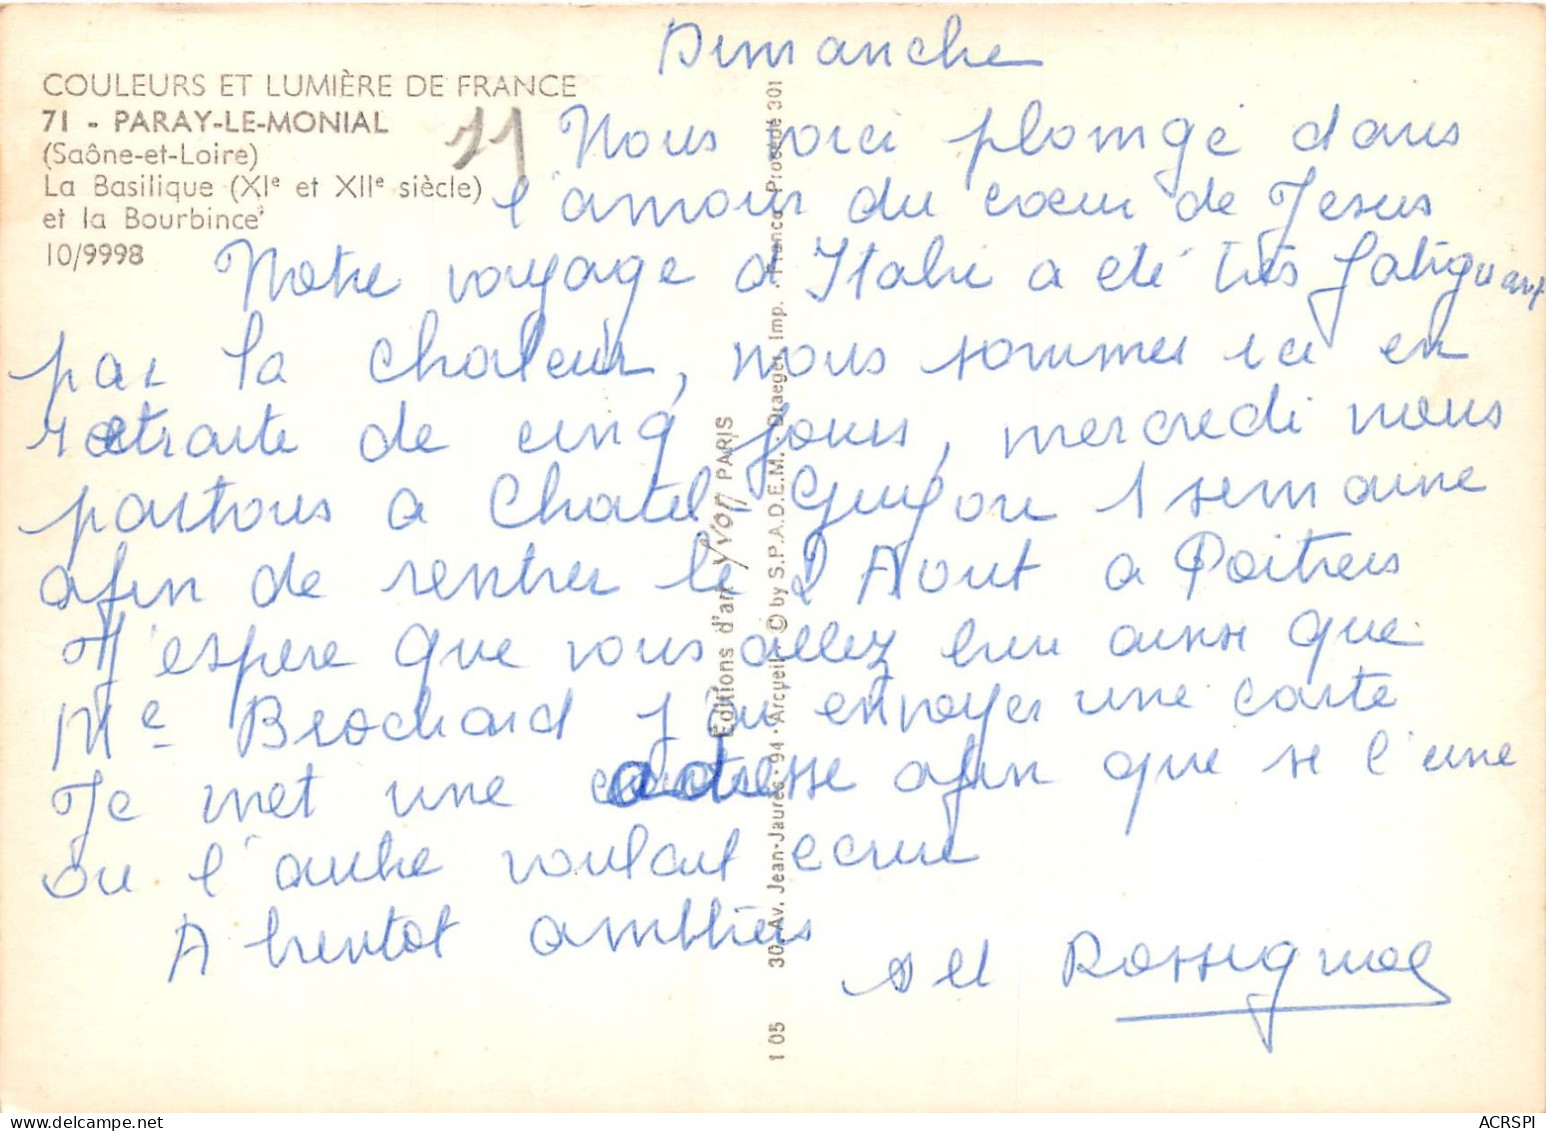 Dimanche
COULEURS ET LUMIÈRE DE FRANCE
71 - PARAY-LE-MONIAL
(Saône-et-Loire)
La Basilique (XIe et XIIe siècle)
et la Bourbince
10/9998
71
Nous voici plongé dans
l'amour du coeur de Jesus
Notre voyage d'Italie a eté très fatiguant
par la chaleur, nous sommes ici en
retraite de cinq jours, mercredi nous
partons a Chatel-Guyon 1 semaine
afin de rentrer le 2 Aout a Poitiers
J'espere que vous allez bien ainsi que
Me Brochard j'ai envoyer une carte
Je met une adresse afin que si l'une
ou l'autre voulait ecrire
A bientot amitiés
Rossignol
Editions d'art YVON PARIS
30, Av. Jean-Jaurès - 94 - Arcueil - © by S.P.A.D.E.M. - Draeger, Imp. - France - Procédé 301
1 05
ACRSPI